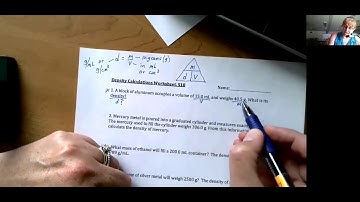 g/mL or d = m – in grams (g)
g/cm³ V – in mL
or cm³
m
d V
Density Calculations Worksheet S10
Name:
1. A block of aluminum occupies a volume of 15.0 mL and weighs 40.5 g. What is its
density?
d ?
2. Mercury metal is poured into a graduated cylinder and measures exactly
The mercury used to fill the cylinder weighs 306.0 g. From this informat
calculate the density of mercury.
What mass of ethanol will fill a 200.0 mL container? The dens
g/mL.
volume of silver metal will weigh 2500 g? The density of